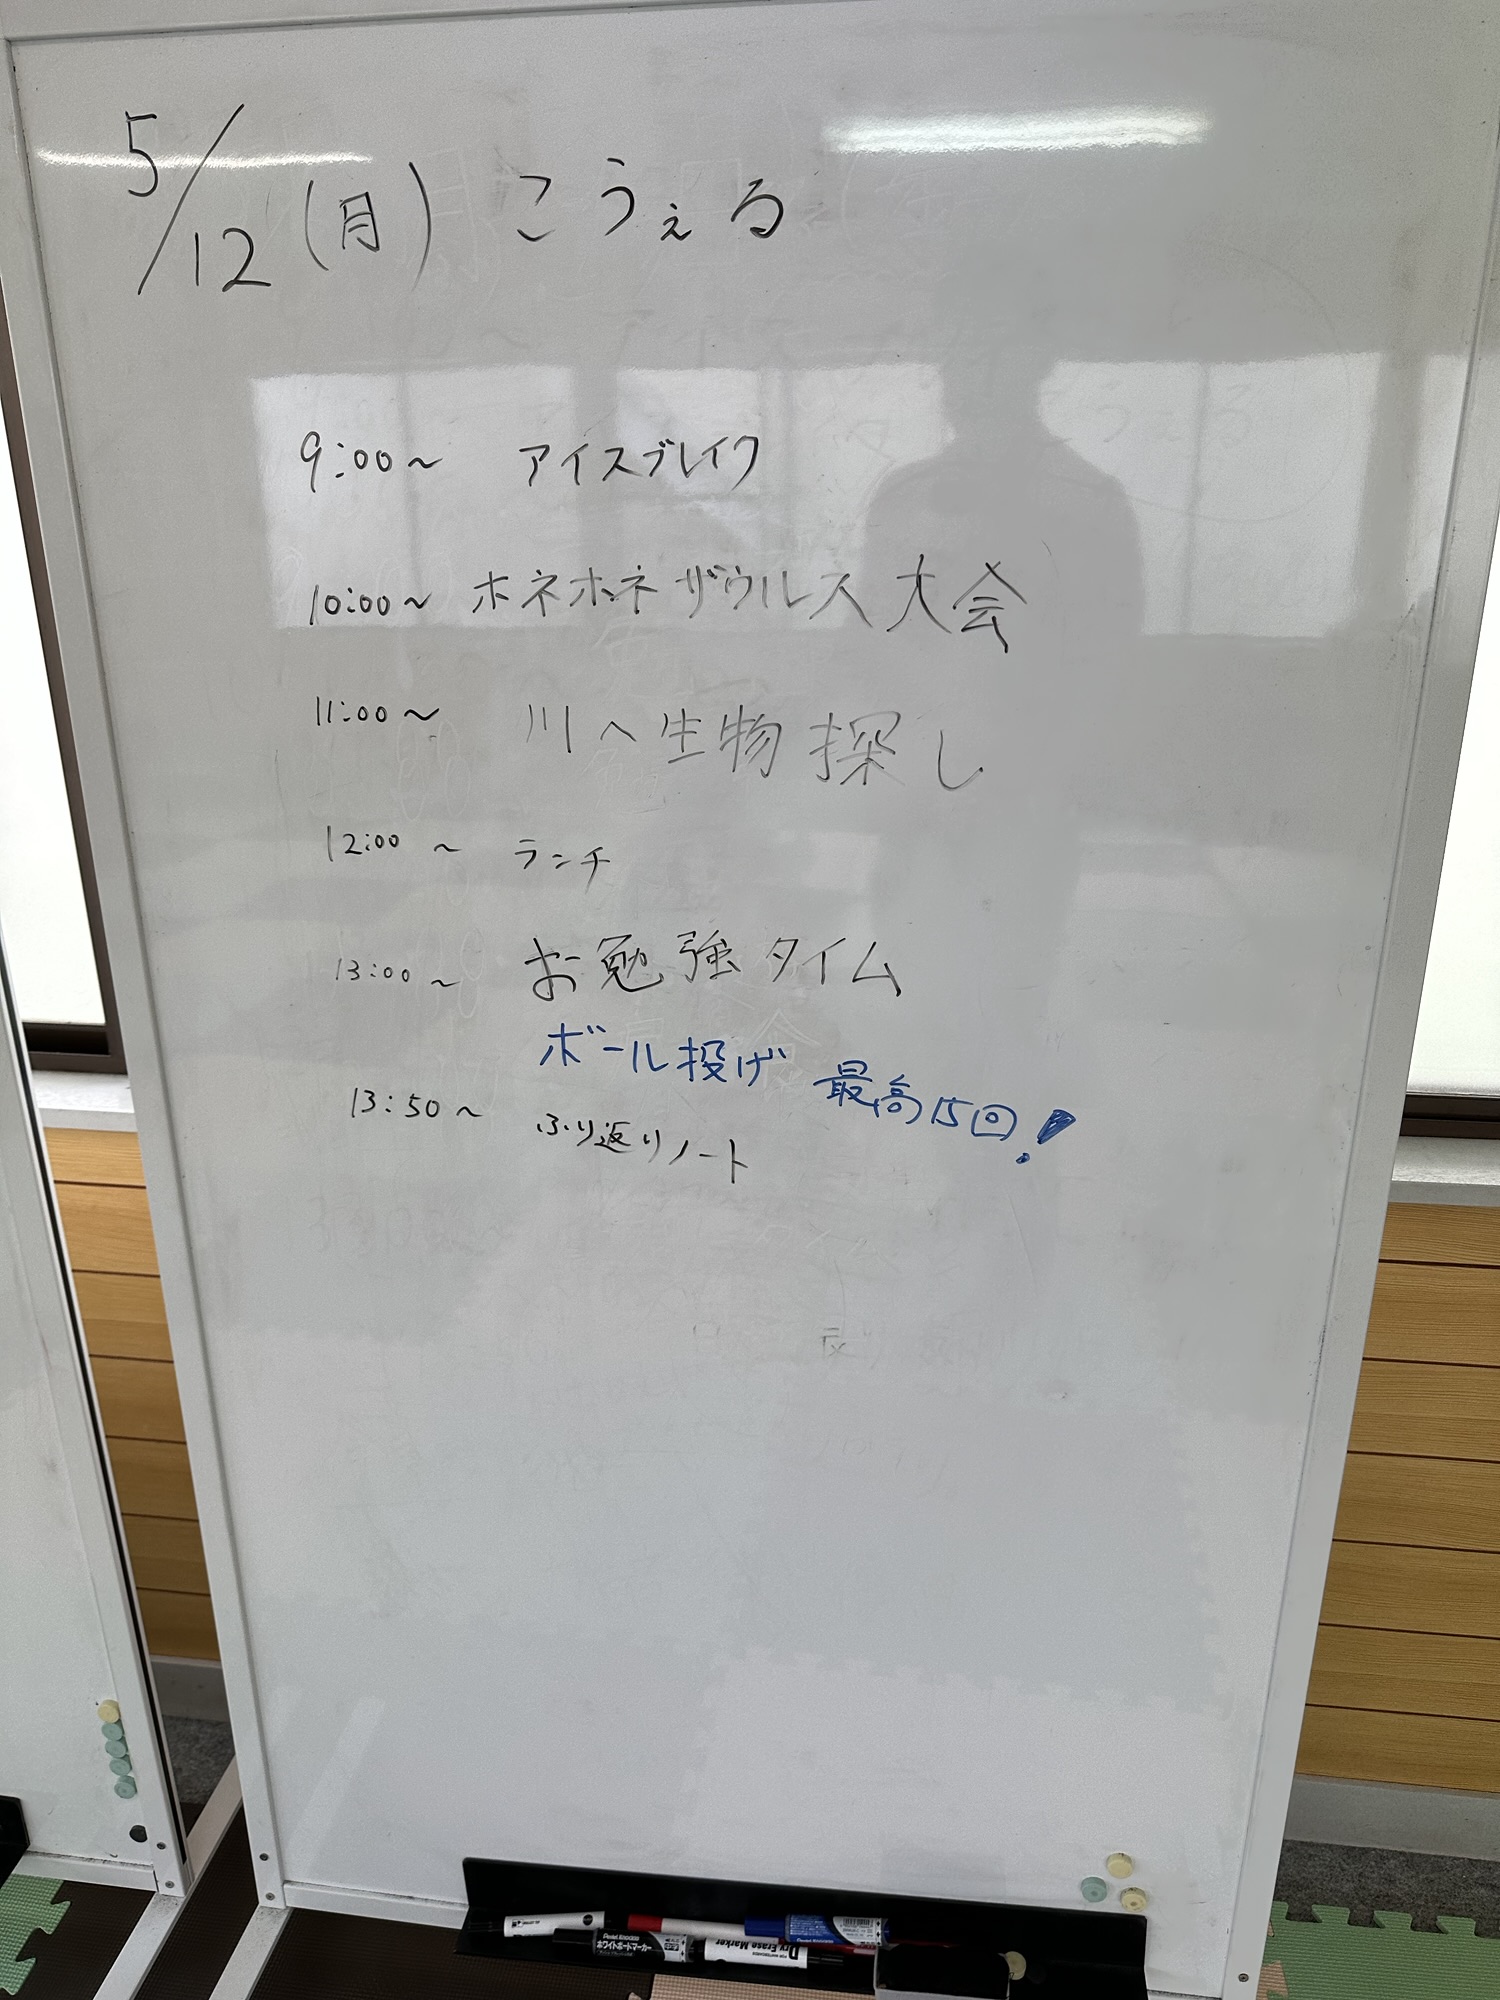 5/12(月) こうぇる
9:00～ アイスブレイク
10:00～ ホネホネザウルス大会
11:00～ 川へ生物探し
12:00 ～ ランチ
13:00 ～ お勉強タイム
ボール投げ 最高15回!
13:50～ ふり返りノート
ホワイトボートマーカー
Dry Erase Marker